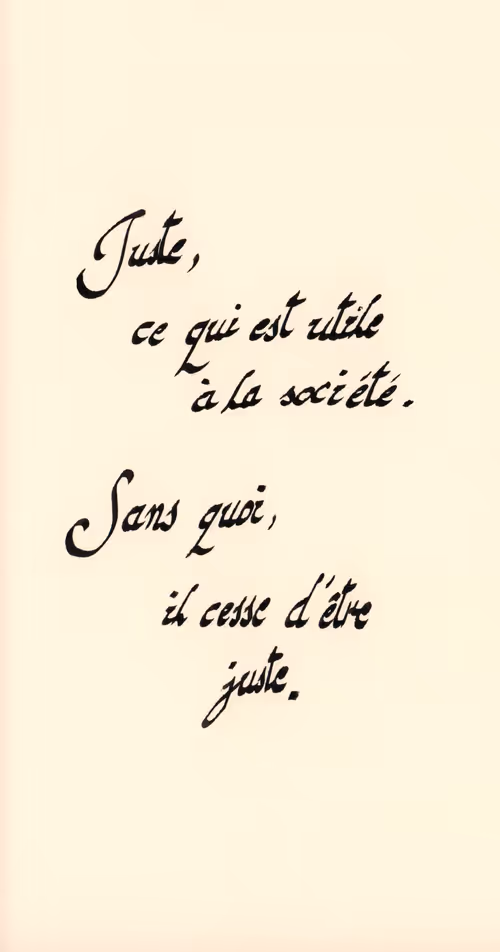 Juste,
ce qui est utile
à la société.
Sans quoi,
il cesse d'être
juste.